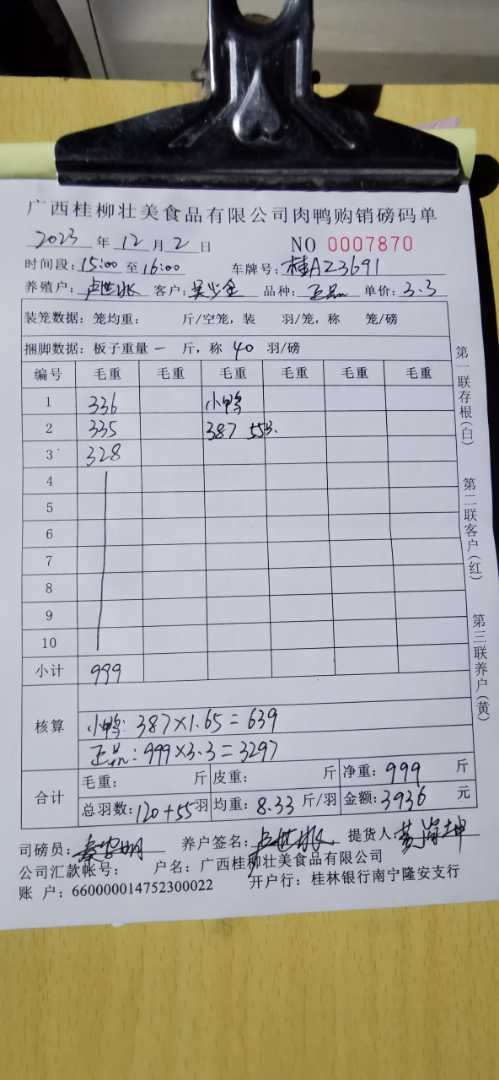 广西桂柳壮美食品有限公司肉鸭购销磅码单
2023 年 12 月 2 日 NO 0007870
时间段: 15:00 至 16:00 车牌号: 桂A23691
养殖户: 卢世 客户: 吴少金 品种: 正品 单价: 3.3
装笼数据: 笼均重: 斤/空笼, 装 羽/笼, 称 笼/磅
捆脚数据: 板子重量 一 斤, 称 40 羽/磅
编号 毛重 毛重 毛重 毛重 毛重 毛重
1 336 小鸭
2 335 387 55只
3 328
4
5
6
7
8
9
10
小计 999
核算
小鸭: 387×1.65=639
正品: 999×3.3=3297
合计
毛重: 斤 皮重: 斤 净重: 999 斤
总羽数: 120+55 羽 均重: 8.33 斤/羽 金额: 3936 元
司磅员: 养户签名: 卢世 提货人: 坤
公司汇款帐号: 户名: 广西桂柳壮美食品有限公司
账 户: 660000014752300022 开户行: 桂林银行南宁隆安支行
第一联存根(白)
第二联客户(红)
第三联养户(黄)